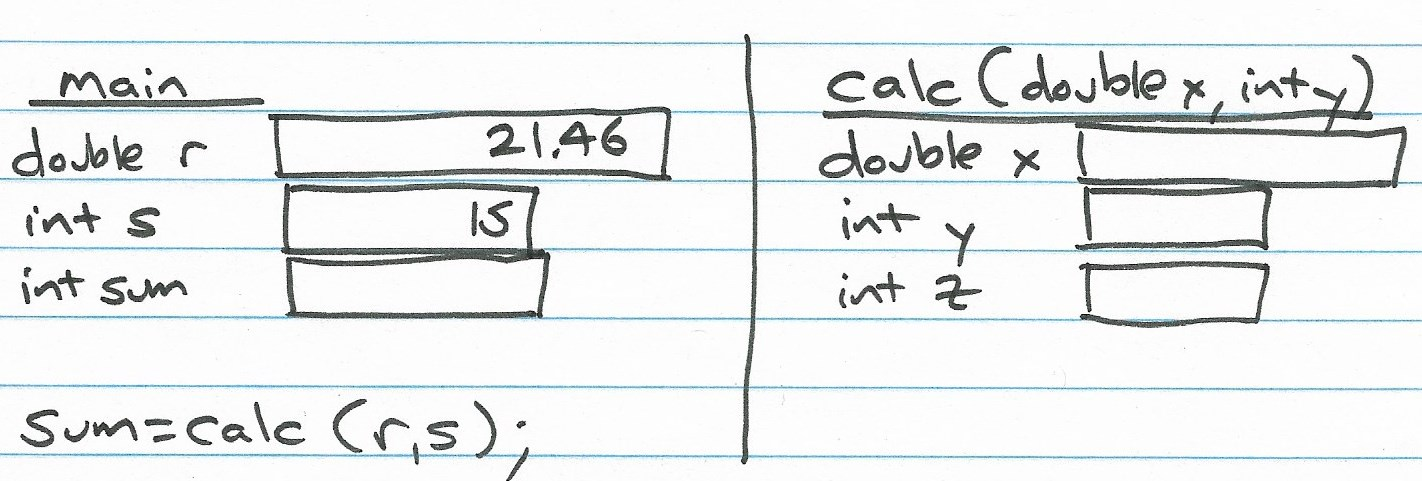 main
double r 21.46
int s 15
int sum
sum=calc (r,s);
calc (double x, int y)
double x
int y
int z